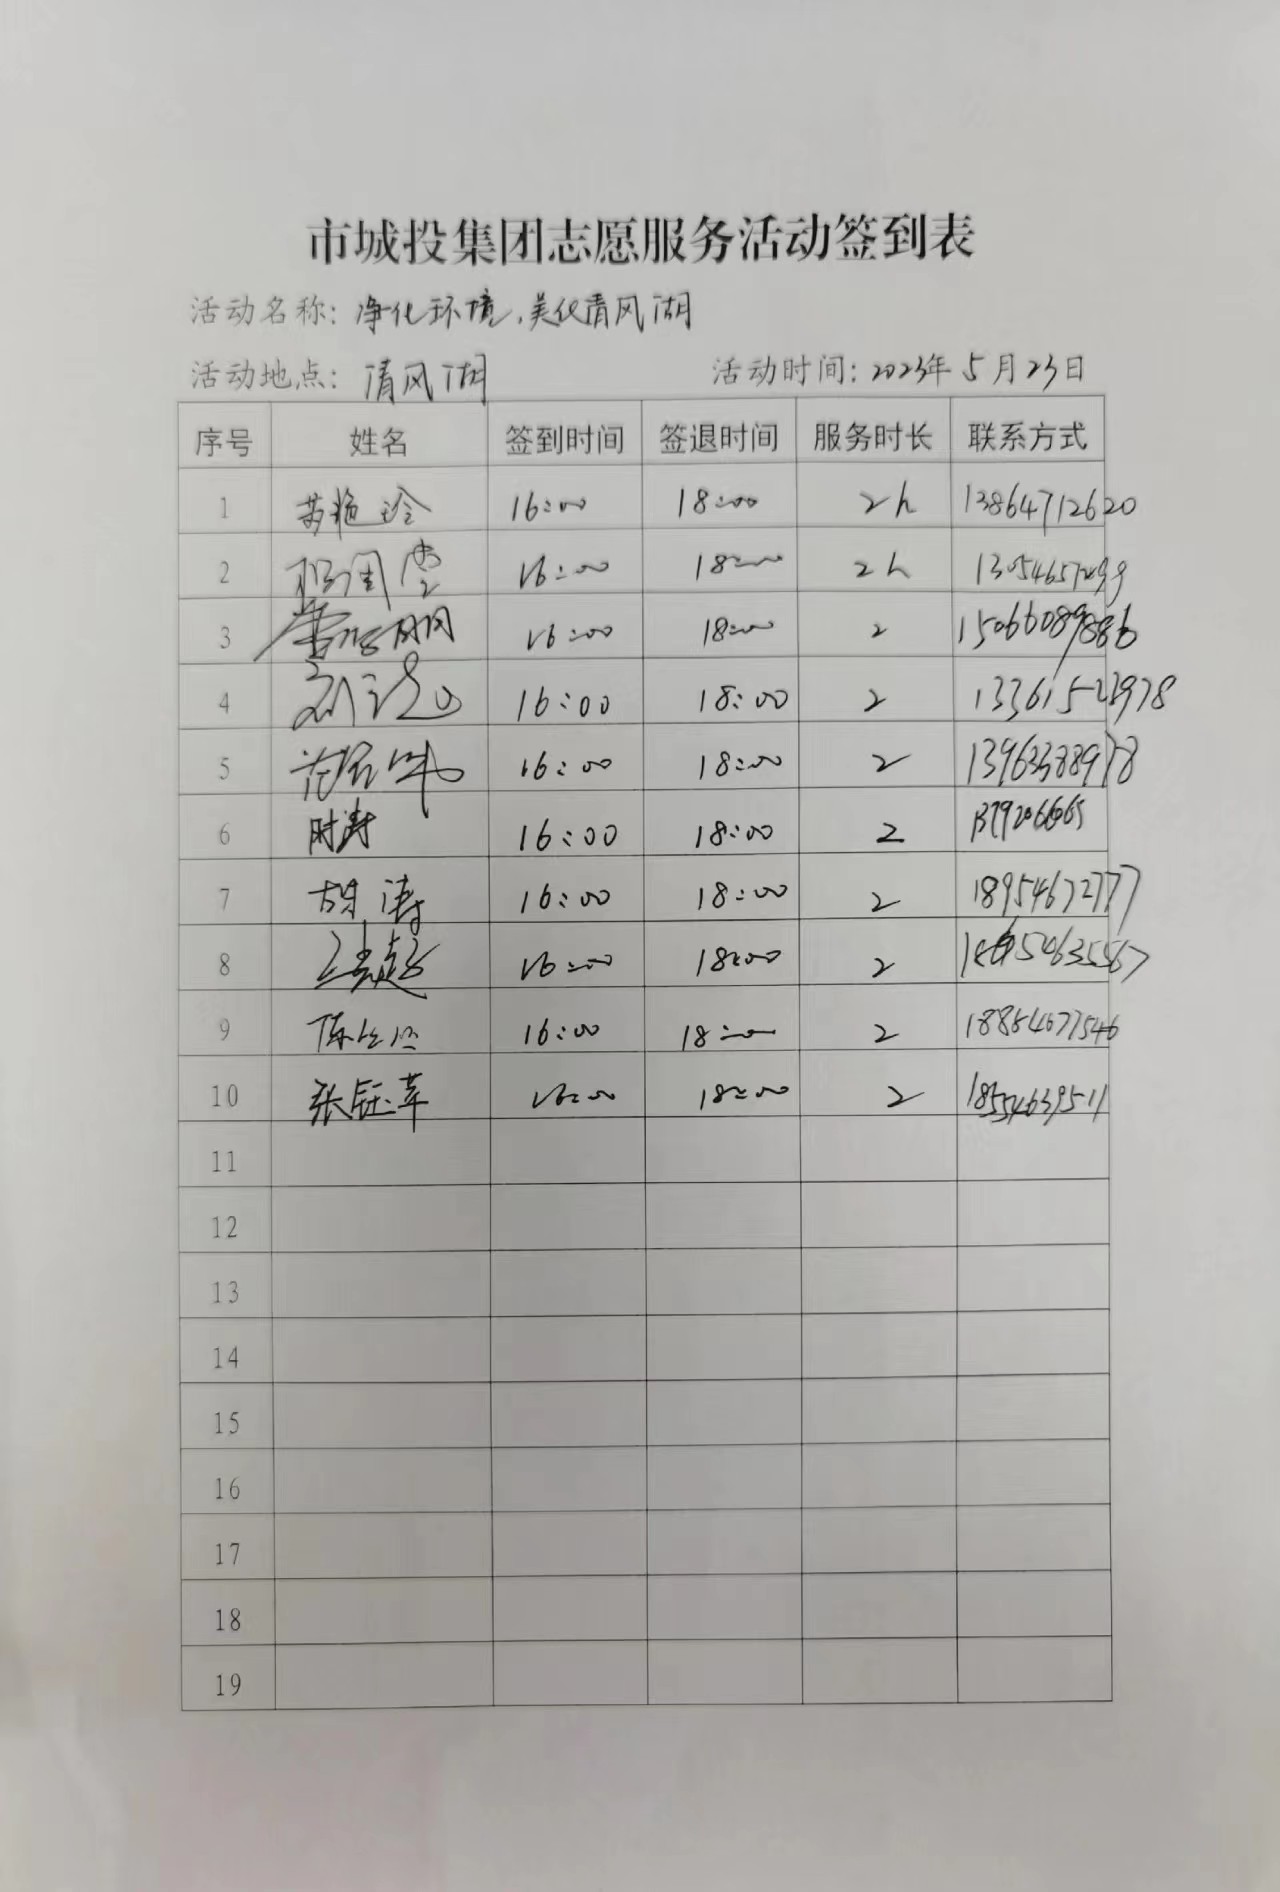 市城投集团志愿服务活动签到表
活动名称：净化环境，美化清风湖
活动地点：清风湖 活动时间：2023年5月23日
序号 姓名 签到时间 签退时间 服务时长 联系方式
1 苏艳玲 16:00 18:00 2h 13864712620
2 16:00 18:00 2h
3 16:00 18:00 2 15066089886
4 16:00 18:00 2
5 16:00 18:00 2 13963388978
6 时涛 16:00 18:00 2
7 胡涛 16:00 18:00 2 18954672777
8 王志超 16:00 18:00 2
9 16:00 18:00 2 18864677546
10 张钰苹 16:00 18:00 2 18554639511
11
12
13
14
15
16
17
18
19